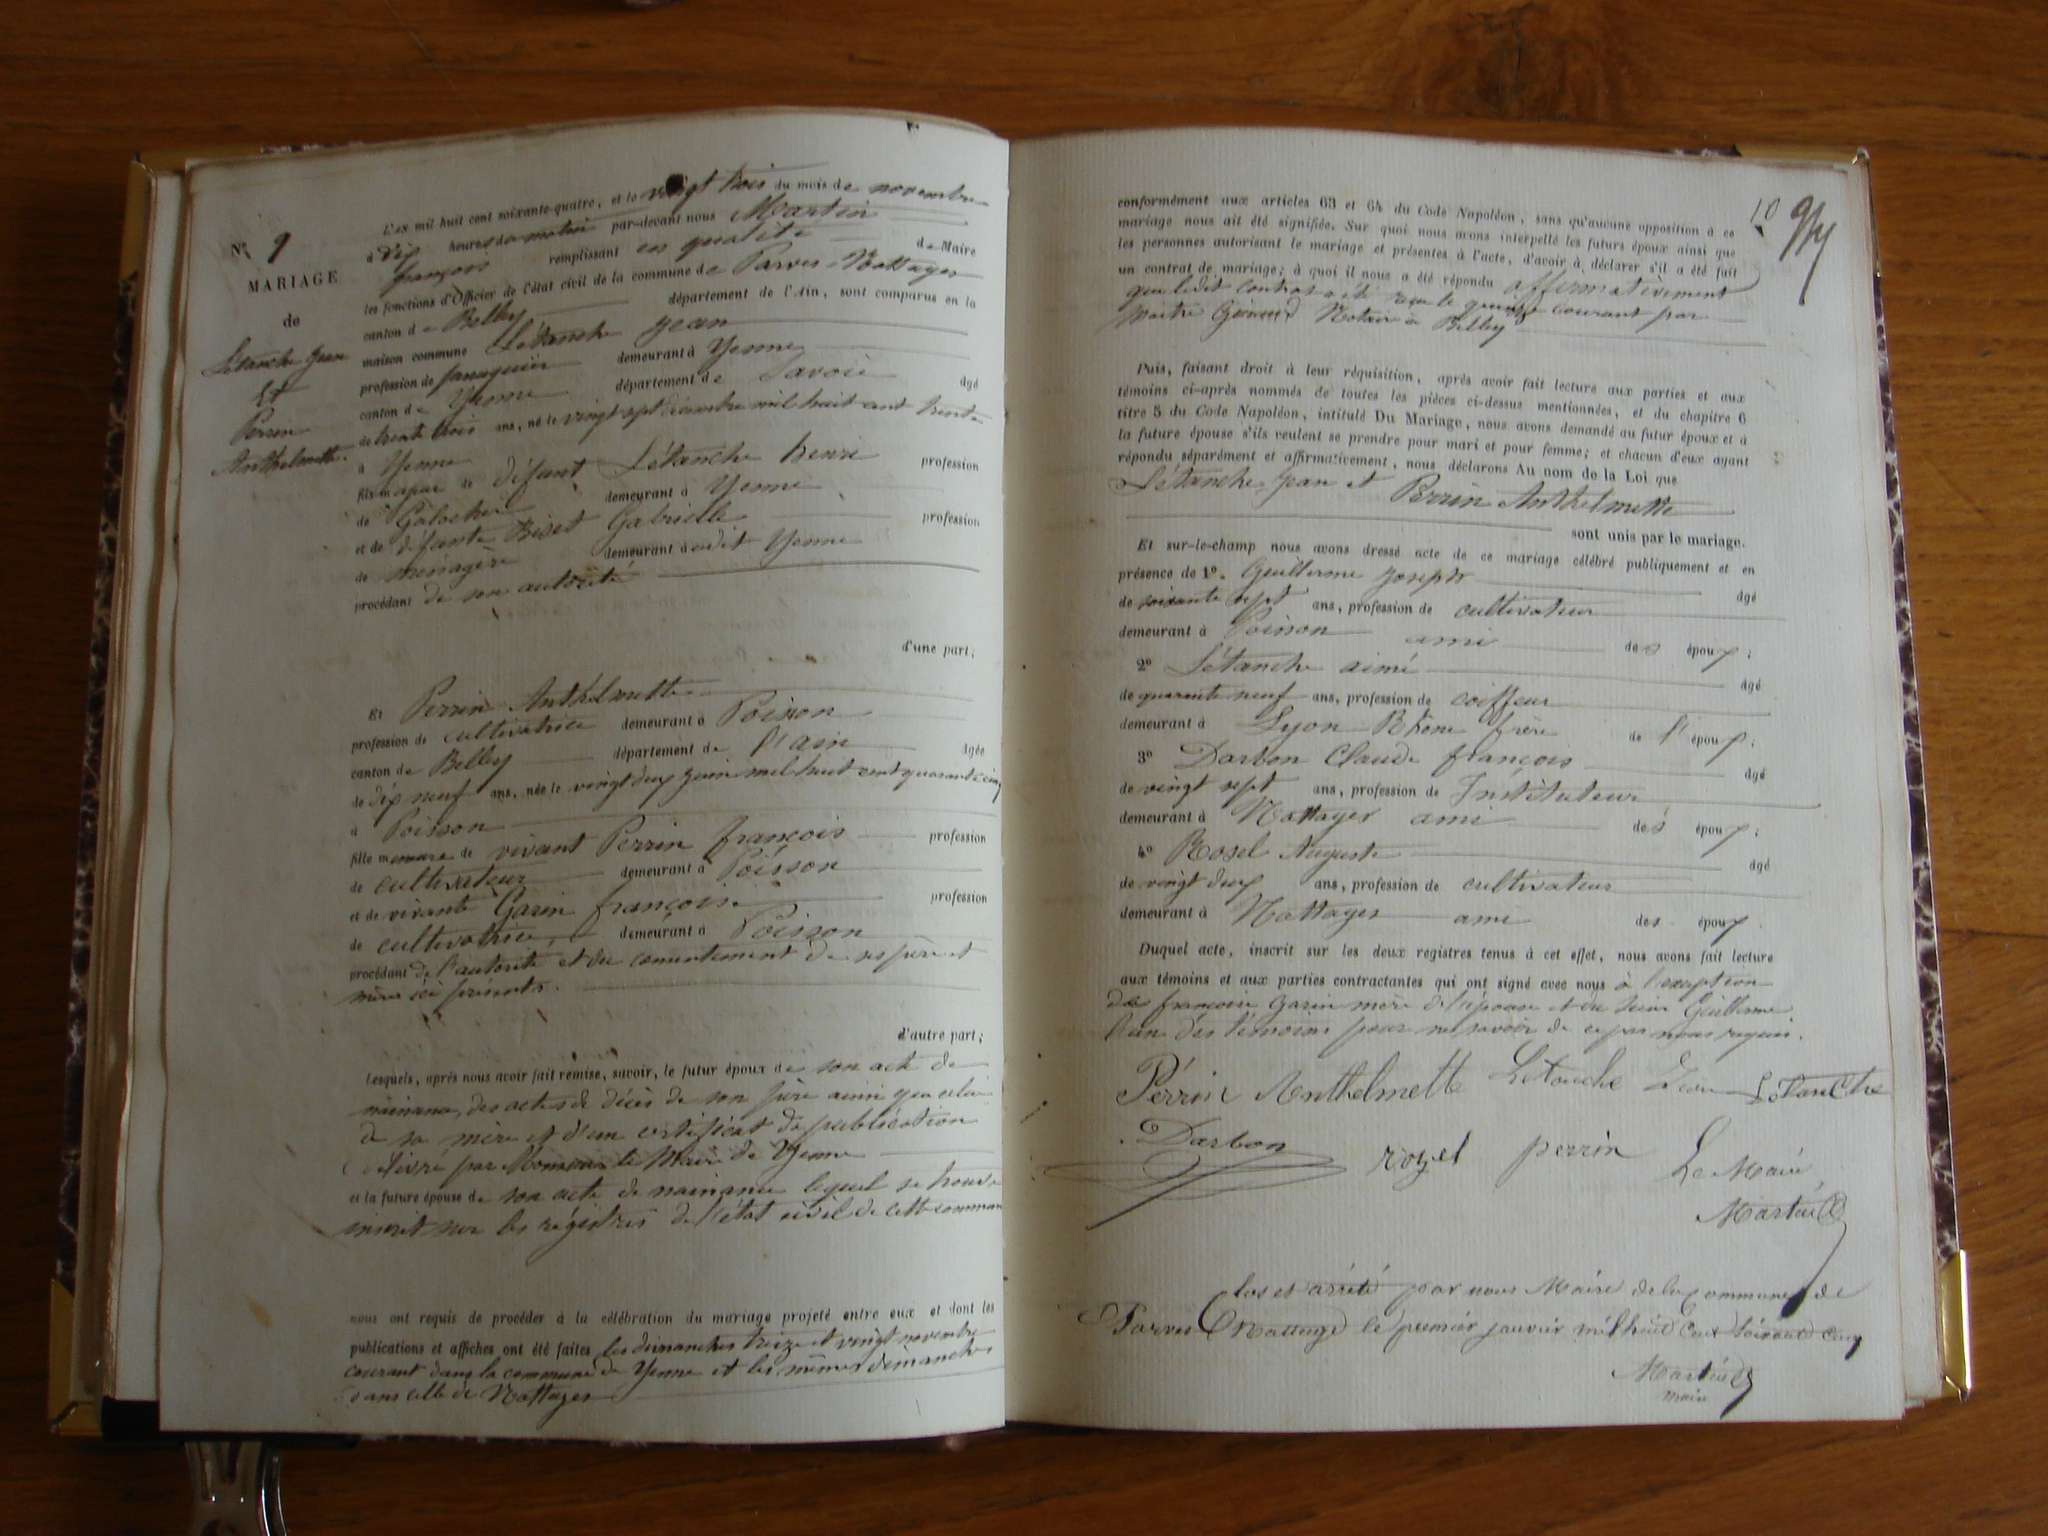 N° 9
MARIAGE
de
Létanche Jean
Et
Perrin
Anthelmette.
L'an mil huit cent soixante-quatre, et le vingt trois du mois de novembre
à dix heures du matin par-devant nous Martin
françois remplissant en qualité de Maire
les fonctions d'Officier de l'état civil de la commune de Parves-Nattages
canton de Belley département de l'Ain, sont comparus en la
maison commune Létanche Jean
profession de demeurant à Yenne
canton de Yenne département de Savoie âgé
de trente trois ans, né le vingt sept décembre mil huit cent trente
à Yenne
fils majeur de défunt Létanche henri profession
de Galocher demeurant à Yenne
et de défunte Biset Gabrielle profession
de ménagère demeurant audit Yenne
procédant de son autorité
d'une part;
Et Perrin Anthelmette
profession de cultivatrice demeurant à Poisson
canton de Belley département de l'ain âgée
de dix neuf ans, née le vingt deux juin mil huit cent quarante cinq
à Poisson
fille mineure de vivant Perrin françois profession
de cultivateur demeurant à Poisson
et de vivante Garin françoise profession
de cultivatrice, demeurant à Poisson
procédant de l'autorité et du consentement de ses père et
mère ici présents.
d'autre part;
Lesquels, après nous avoir fait remise, savoir, le futur époux de son acte de
naissance, des actes de décès de son père ainsi que celui
de sa mère et d'un certificat de publication
délivré par Monsieur le Maire de Yenne
et la future épouse de son acte de naissance lequel se trouve
inscrit sur les régistres de l'état civil de cette commune
nous ont requis de procéder à la célébration du mariage projeté entre eux et dont les
publications et affiches ont été faites les dimanches treize et vingt novembre
courant dans la commune de Yenne et les mêmes dimanches
dans celle de Nattages
10
conformément aux articles 63 et 64 du Code Napoléon, sans qu'aucune opposition à ce
mariage nous ait été signifiée. Sur quoi nous avons interpellé les futurs époux ainsi que
les personnes autorisant le mariage et présentes à l'acte, d'avoir à déclarer s'il a été fait
un contrat de mariage; à quoi il nous a été répondu affirmativement
que ledit contrat a été reçu le quinze courant par
Maitre Notaire à Belley
Puis, faisant droit à leur réquisition, après avoir fait lecture aux parties et aux
témoins ci-après nommés de toutes les pièces ci-dessus mentionnées, et du chapitre 6
titre 5 du Code Napoléon, intitulé Du Mariage, nous avons demandé au futur époux et à
la future épouse s'ils veulent se prendre pour mari et pour femme; et chacun d'eux ayant
répondu séparément et affirmativement, nous déclarons Au nom de la Loi que
Létanche Jean et Perrin Anthelmette
sont unis par le mariage.
Et sur-le-champ nous avons dressé acte de ce mariage célébré publiquement et en
présence de 1°. Guillerme Joseph âgé
de soixante sept ans, profession de cultivateur
demeurant à Poisson ami des époux;
2° Létanche aimé âgé
de quarante neuf ans, profession de coiffeur
demeurant à Lyon Rhône frère de l'époux;
3° Darbon Claude françois âgé
de vingt sept ans, profession de Instituteur
demeurant à Nattages ami des époux;
4° Rosel Auguste âgé
de vingt deux ans, profession de cultivateur
demeurant à Nattages ami des époux.
Duquel acte, inscrit sur les deux registres tenus à cet effet, nous avons fait lecture
aux témoins et aux parties contractantes qui ont signé avec nous à l'exception
de françoise Garin mère de l'épouse et du sieur Guillerme
l'un des témoins pour ne savoir de ce par nous requis.
Pérrin Anthelmette Letanche Jean LeTanche
Darbon rozel perrin Le Maire,
Martin
Clos et arrêté par nous Maire de la Commune de
Parves Nattages le premier janvier mil huit Cent soixante Cinq
Martin
maire